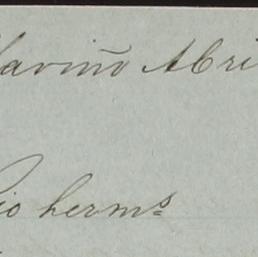 aviño Abri
io herms